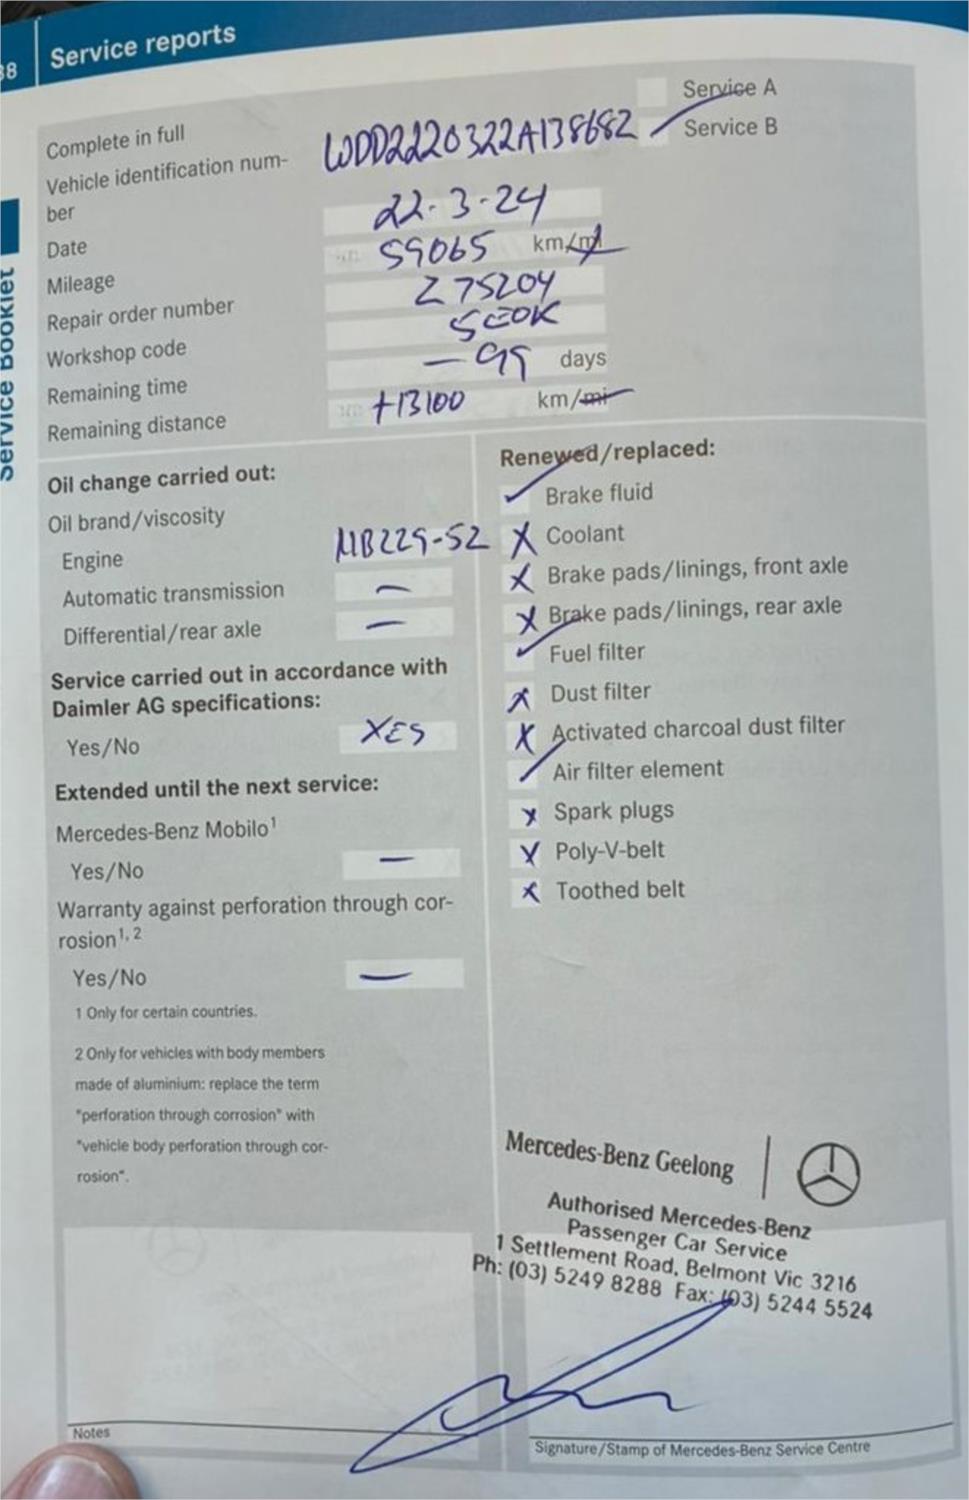 38 Service reports
Service Booklet
Complete in full
Service A
Vehicle identification num-
ber
WDD2220322A138682
Service B
Date 22-3-24
Mileage 59065 km/mi
Repair order number Z75204
Workshop code SEOK
Remaining time -99 days
Remaining distance +13100 km/mi
Oil change carried out:
Oil brand/viscosity
Engine MB229-52
Automatic transmission —
Differential/rear axle —
Service carried out in accordance with
Daimler AG specifications:
Yes/No YES
Extended until the next service:
Mercedes-Benz Mobilo1
Yes/No —
Warranty against perforation through cor-
rosion1, 2
Yes/No —
1 Only for certain countries.
2 Only for vehicles with body members
made of aluminium: replace the term
"perforation through corrosion" with
"vehicle body perforation through cor-
rosion".
Renewed/replaced:
✓ Brake fluid
X Coolant
X Brake pads/linings, front axle
X Brake pads/linings, rear axle
✓ Fuel filter
X Dust filter
X Activated charcoal dust filter
✓ Air filter element
X Spark plugs
X Poly-V-belt
X Toothed belt
Mercedes-Benz Geelong
Authorised Mercedes-Benz
Passenger Car Service
1 Settlement Road, Belmont Vic 3216
Ph: (03) 5249 8288 Fax: (03) 5244 5524
Notes
Signature/Stamp of Mercedes-Benz Service Centre